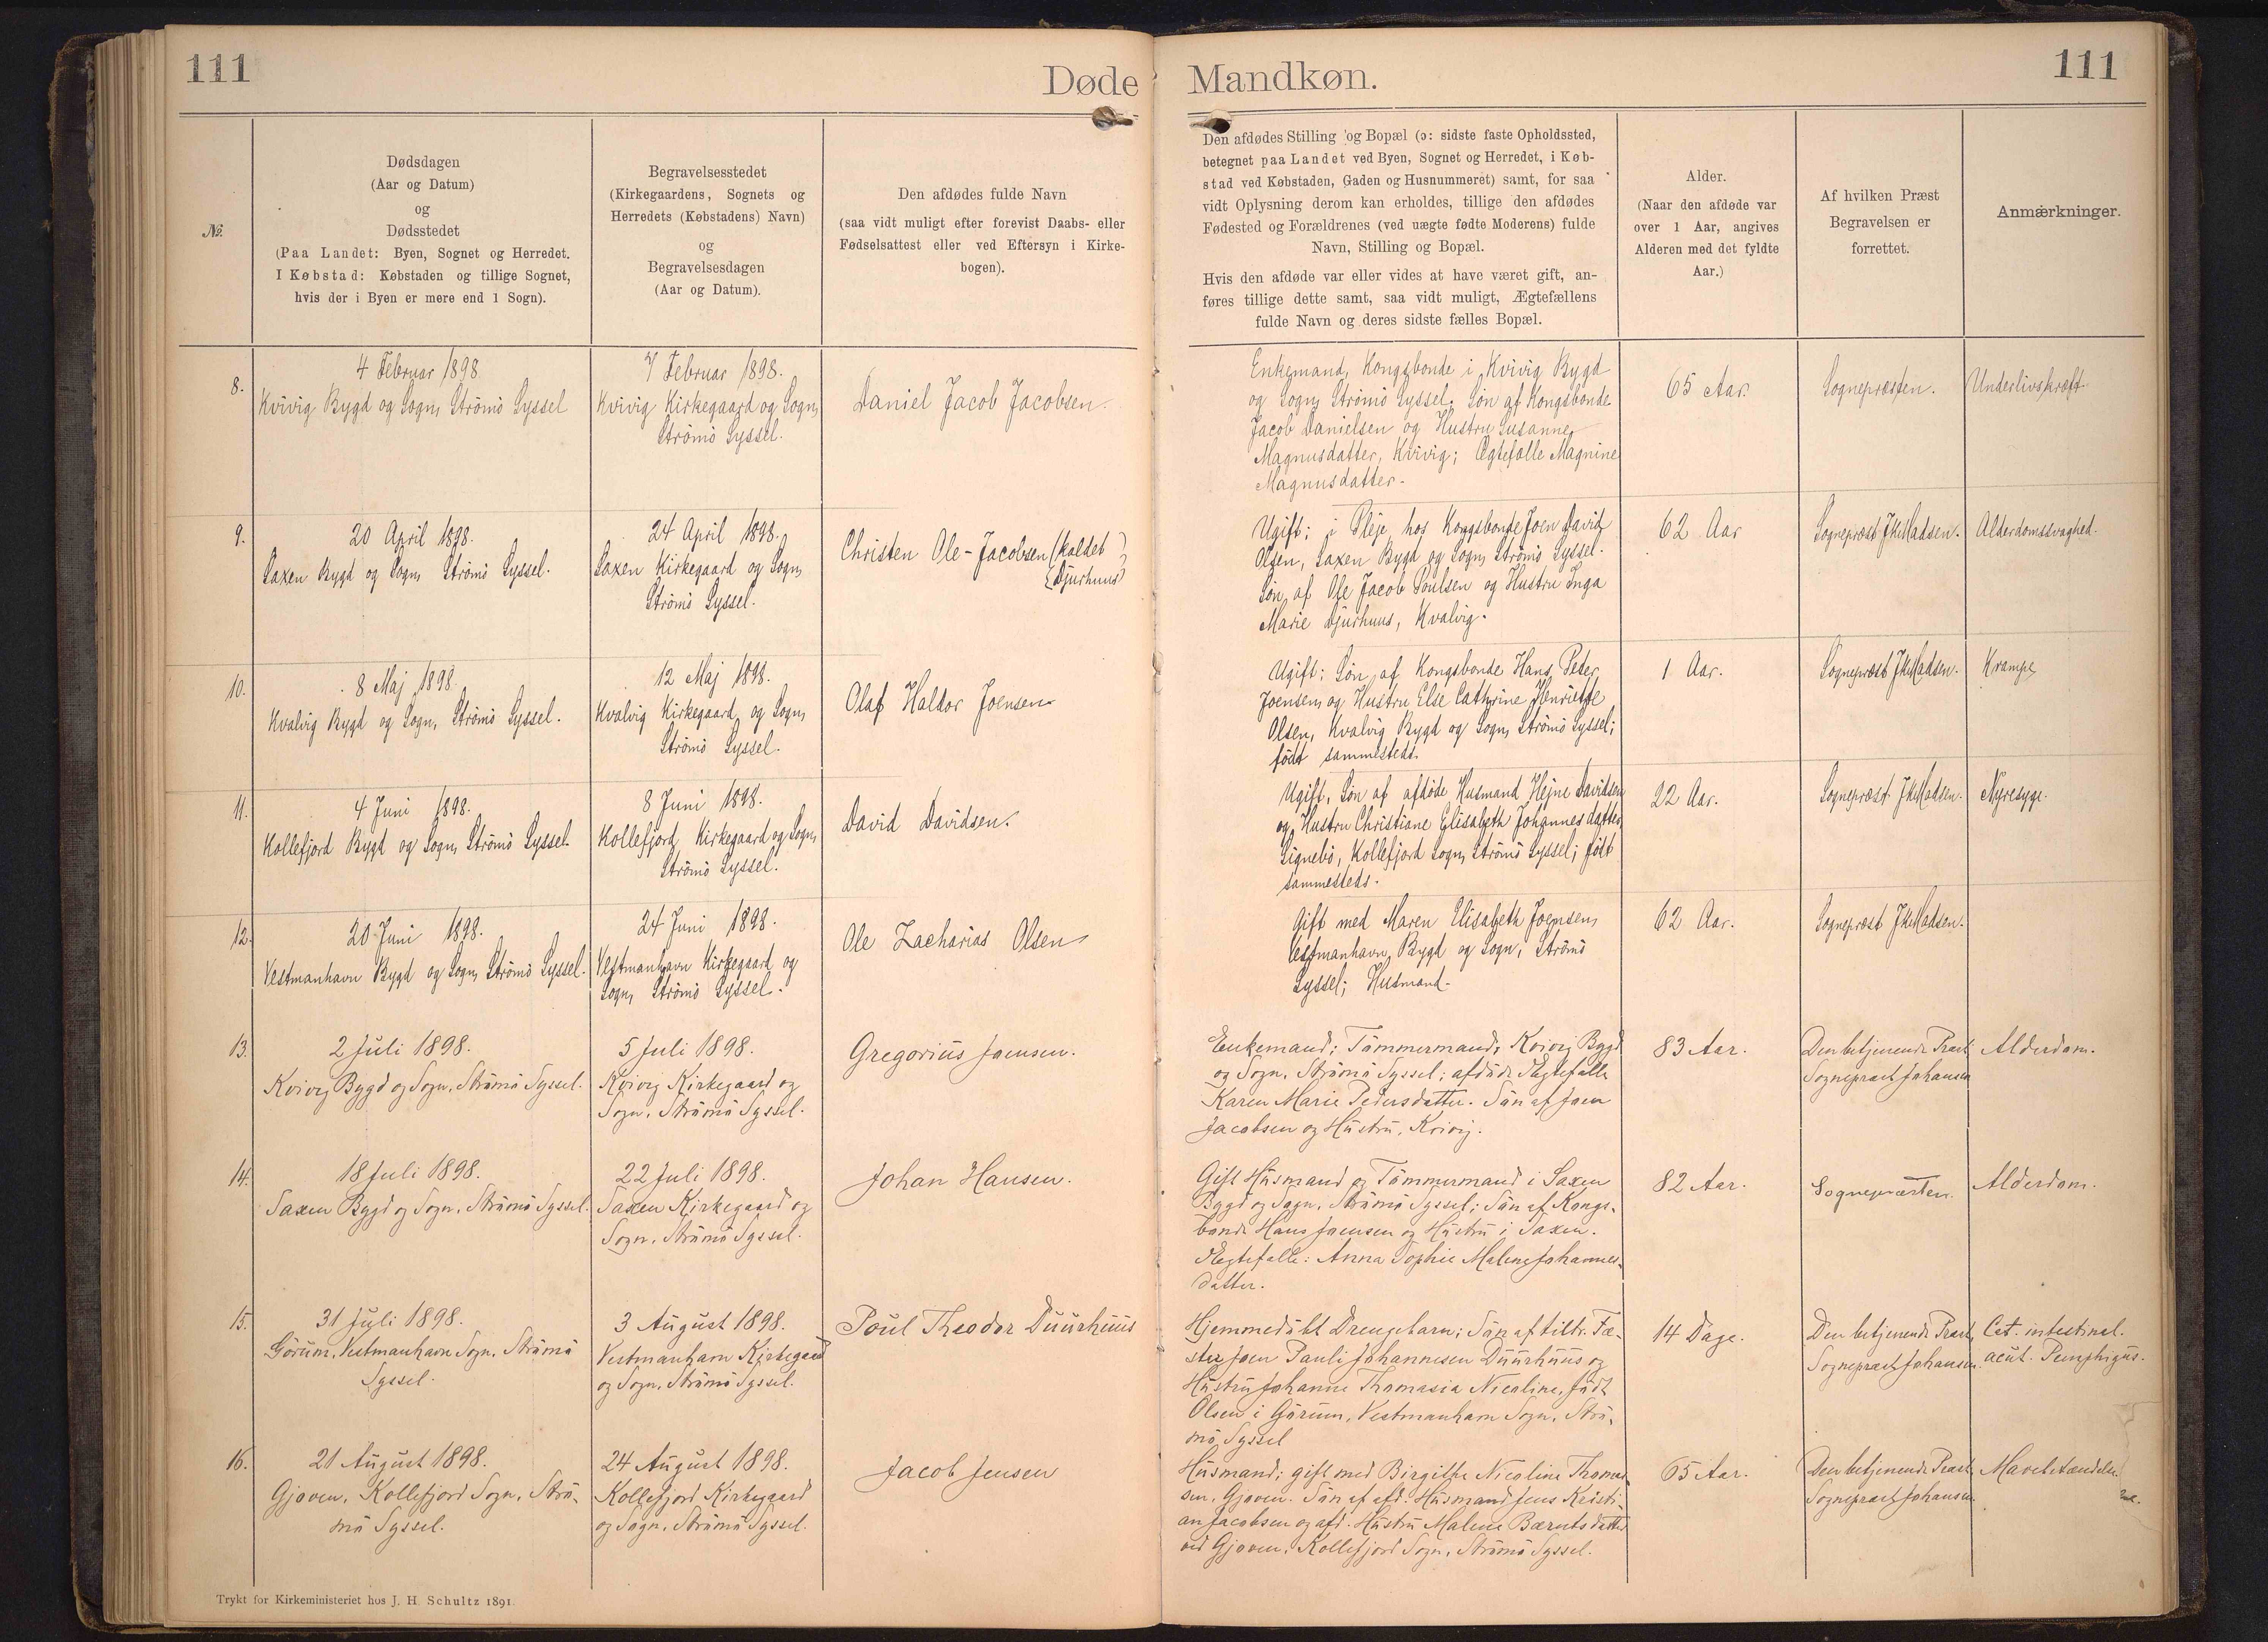 111
Døde
Mandkøn.
111
№.
Dødsdagen
(Aar og Datum)
og
Dødsstedet
(Paa Landet: Byen, Sognet og Herredet.
I Købstad: Købstaden og tillige Sognet,
hvis der i Byen er mere end 1 Sogn).
Begravelsesstedet
(Kirkegaardens, Sognets og
Herredets (Købstadens) Navn)
og
Begravelsesdagen
(Aar og Datum).
Den afdødes fulde Navn
(saa vidt muligt efter forevist Daabs- eller
Fødselsattest eller ved Eftersyn i Kirke-
bogen).
Den afdødes Stilling og Bopæl (ɔ: sidste faste Opholdssted,
betegnet paa Landet ved Byen, Sognet og Herredet, i Køb-
stad ved Købstaden, Gaden og Husnummeret) samt, for saa
vidt Oplysning derom kan erholdes, tillige den afdødes
Fødested og Forældrenes (ved uægte fødte Moderens) fulde
Navn, Stilling og Bopæl.
Hvis den afdøde var eller vides at have været gift, an-
føres tillige dette samt, saa vidt muligt, Ægtefællens
fulde Navn og deres sidste fælles Bopæl.
Alder.
(Naar den afdøde var
over 1 Aar, angives
Alderen med det fyldte
Aar.)
Af hvilken Præst
Begravelsen er
forrettet.
Anmærkninger.
8.
4 Februar 1898
Kvivig Bygd og Sogn, Strömö Syssel
7 Februar 1898.
Kvivig Kirkegaard og Sogn,
Strömö Syssel.
Daniel Jacob Jacobsen.
Enkemand, Kongsbonde i Kvivig Bygd
og Sogn, Strömö Syssel. Søn af Kongsbonde
Jacob Danielsen og Hustru Susanne
Magnusdatter, Kvivig; Ægtefælle Magnine
Magnusdatter.
65 Aar.
Sognepræsten.
Underlivskræft
9.
20 April 1898.
Saxen Bygd og Sogn, Strömö Syssel.
24 April 1898.
Saxen Kirkegaard og Sogn,
Strömö Syssel.
Christen Ole-Jacobsen (kaldet
Djurhuus)
Ugift; i Pleje hos Kongsbonde Joen David
Olsen, Saxen Bygd og Sogn, Strömö Syssel.
Søn af Ole Jacob Poulsen og Hustru Inga
Marie Djurhuus, Kvalvig.
62 Aar
Sognepræst JkMadsen.
Alderdomssvaghed.
10.
8 Maj 1898.
Kvalvig Bygd og Sogn, Strömö Syssel.
12 Maj 1898.
Kvalvig Kirkegaard og Sogn,
Strömö Syssel.
Olaf Haldor Joensen
Ugift; Søn af Kongsbonde Hans Peter
Joensen og Hustru Else Cathrine Henriette
Olsen, Kvalvig Bygd og Sogn, Strömö Syssel;
født sammesteds.
1 Aar.
Sognepræst JkMadsen.
Krampe
11.
4 Juni 1898.
Kollefjord Bygd og Sogn, Strömö Syssel.
8 Juni 1898.
Kollefjord Kirkegaard og Sogn,
Strömö Syssel.
David Davidsen.
Ugift, Søn af afdøde Husmand Hejne Davidsen
og Hustru Christiane Elisabeth Johannesdatter
Signebö, Kollefjord Sogn, Strömö Syssel; født
sammesteds.
22 Aar.
Sognepræst JkMadsen.
Nyresyge.
12.
20 Juni 1898.
Vestmanhavn Bygd og Sogn, Strömö Syssel.
24 Juni 1898.
Vestmanhavn Kirkegaard og
Sogn, Strömö Syssel.
Ole Zacharias Olsen
Gift med Maren Elisabeth Joensen,
Vestmanhavn Bygd og Sogn, Strömö
Syssel; Husmand.
62 Aar.
Sognepræst JkMadsen.
13.
2 Juli 1898.
Kvivig Bygd og Sogn, Strömö Syssel.
5 Juli 1898.
Kvivig Kirkegaard og
Sogn, Strömö Syssel.
Gregorius Joensen.
Enkemand; Tömmermand, Kvivig Bygd
og Sogn, Strömö Syssel; afdøde Ægtefælle
Karen Marie Pedersdatter. Sön af Joen
Jacobsen og Hustru, Kvivig.
83 Aar.
Den betjenende Præst,
Sognepræst Johansen
Alderdom.
14.
18 Juli 1898.
Saxen Bygd og Sogn, Strömö Syssel.
22 Juli 1898.
Saxen Kirkegaard og
Sogn, Strömö Syssel.
Johan Hansen.
Gift Husmand og Tömmermand i Saxen
Bygd og Sogn, Strömö Syssel; Sön af Kongs-
bonde Hans Joensen og Hustru i Saxen.
Ægtefælle: Anna Sophie Malene Johannes-
datter.
82 Aar.
Sognepræsten.
Alderdom.
15.
31 Juli 1898.
Görum, Vestmanhavn Sogn, Strömö
Syssel.
3 August 1898.
Vestmanhavn Kirkegaard
og Sogn, Strömö Syssel.
Poul Theodor Duurhuus
Hjemmedöbt Drengebarn; Sön af tiltr. Fæ-
ster Joen Pauli Johannesen Duurhuus og
Hustru Johanne Thomasia Nicoline, född
Olsen i Görum, Vestmanhavn Sogn, Strö-
mö Syssel
14 Dage.
Den betjenende Præst,
Sognepræst Johansen.
Cat. intestinal.
acut. Pemphigus.
16.
21 August 1898.
Gjoven, Kollefjord Sogn, Strö-
mö Syssel.
24 August 1898.
Kollefjord Kirkegaard
og Sogn, Strömö Syssel.
Jacob Jensen
Husmand; gift med Birgithe Nicoline Thomas-
sen, Gjoven. Sön af afd. Husmand Jens Kristi-
an Jacobsen og afd. Hustru Malene Bærentsdatter
ved Gjoven, Kollefjord Sogn, Strömö Syssel.
65 Aar.
Den betjenende Præst,
Sognepræst Johansen.
Mavebetændelse
Trykt for Kirkeministeriet hos J. H. Schultz 1891.